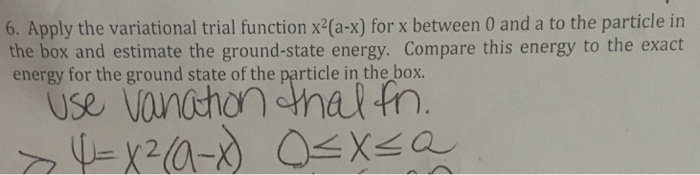 6. Apply the variational trial function x²(a-x) for x between 0 and a to the particle in
the box and estimate the ground-state energy. Compare this energy to the exact
energy for the ground state of the particle in the box.
Use Variation trial fn.
> ψ=x²(a-x) 0≤x≤a